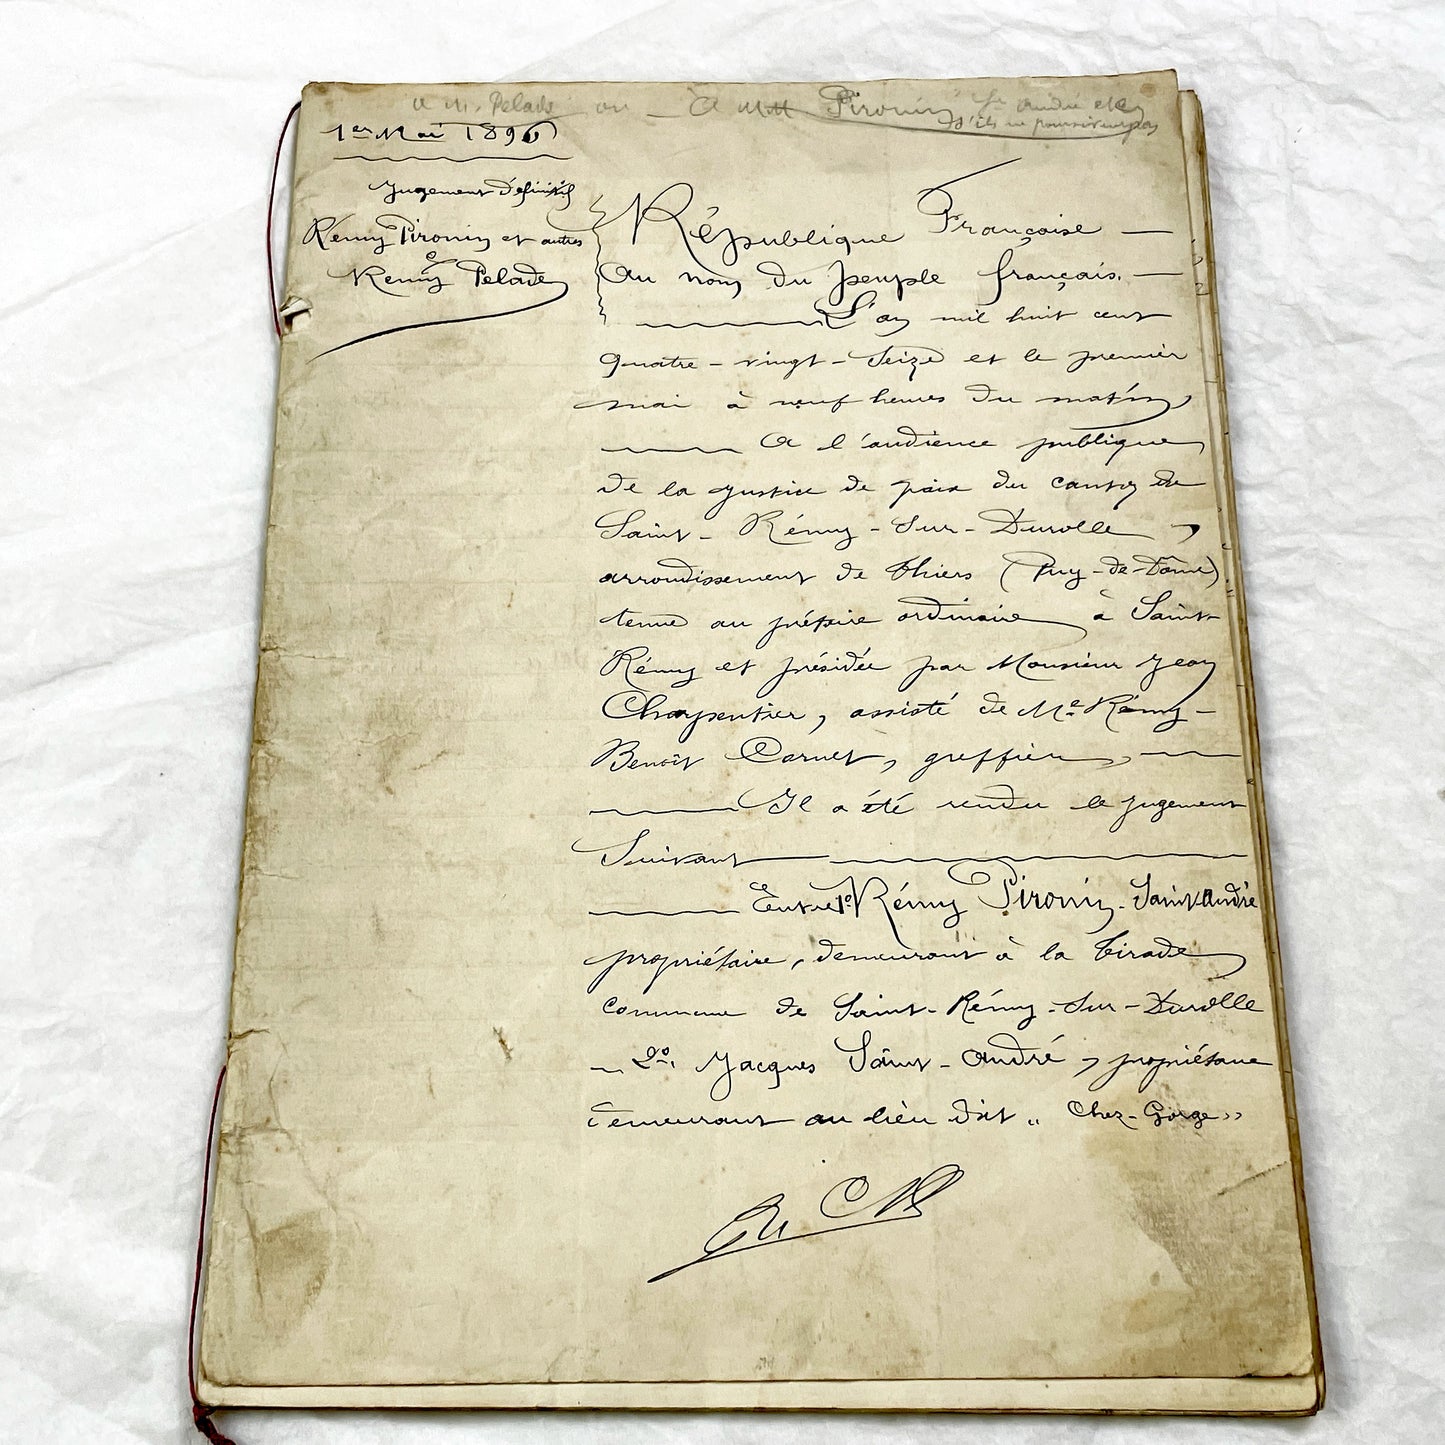 a M. Pelade ou _ A MM Pironin St André et
s'ils ne poursuivent pas
1er Mai 1896
Jugement Définitif
Rémy Pironin et autres
Cᵉ
Remy Pelade
République Française —
Au nom du peuple français. —
L'an mil huit cent
quatre-vingt-seize et le premier
mai à neuf heures du matin,
A l'audience publique
de la justice de paix du canton de
Saint-Rémy-sur-Durolle,
arrondissement de Thiers (Puy-de-Dôme)
tenue au prétoire ordinaire à Saint-
Rémy et présidée par Monsieur Jean
Charpentier, assisté de Me Rémy-
Benoît Cornet, greffier, —
Il a été rendu le jugement
Suivant
Entre 1º Rémy Pironin-Saint André
propriétaire, demeurant à la Tirade
commune de Saint-Rémy-sur-Durolle
2º. Jacques Saint-André, propriétaire
demeurant au lieu dit „ Chez-Gorge"